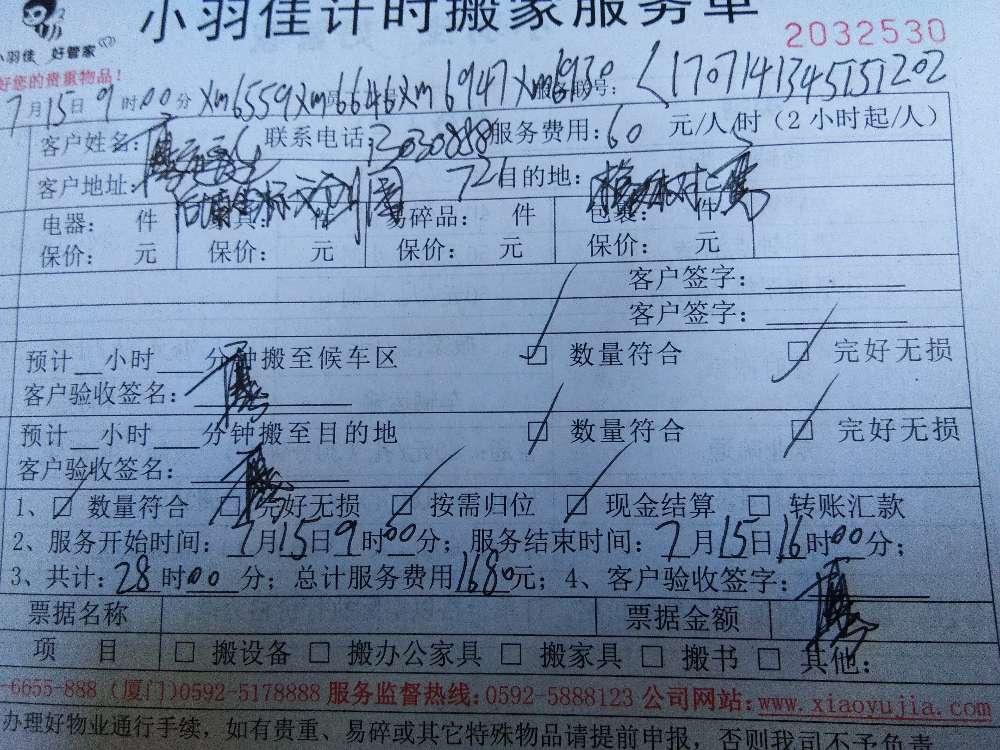 小羽佳计时搬家服务单
小羽佳 好管家
2032530
好您的贵重物品！
7月15日9时00分 xm6559 xm6646 xm6947 xm6930 服务联号：1707141345151202
客户姓名： 联系电话： 服务费用：60 元/人/时（2小时起/人）
客户地址： 721 目的地：
电器： 件 家具： 件 易碎品： 件 包裹： 件
保价： 元 保价： 元 保价： 元 保价： 元
客户签字：
客户签字：
预计 小时 分钟搬至候车区 □ 数量符合 □ 完好无损
客户验收签名：
预计 小时 分钟搬至目的地 □ 数量符合 □ 完好无损
客户验收签名：
1、□ 数量符合 □ 完好无损 □ 按需归位 □ 现金结算 □ 转账汇款
2、服务开始时间：7月15日9时00分；服务结束时间：7月15日16时00分；
3、共计：28时00分；总计服务费用1680元；4、客户验收签字：
票据名称 票据金额
项 目 □ 搬设备 □ 搬办公家具 □ 搬家具 □ 搬书 □ 其他：
-6655-888 (厦门)0592-5178888 服务监督热线：0592-5888123 公司网站：www.xiaoyujia.com
办理好物业通行手续，如有贵重、易碎或其它特殊物品请提前申报，否则我司不予负责